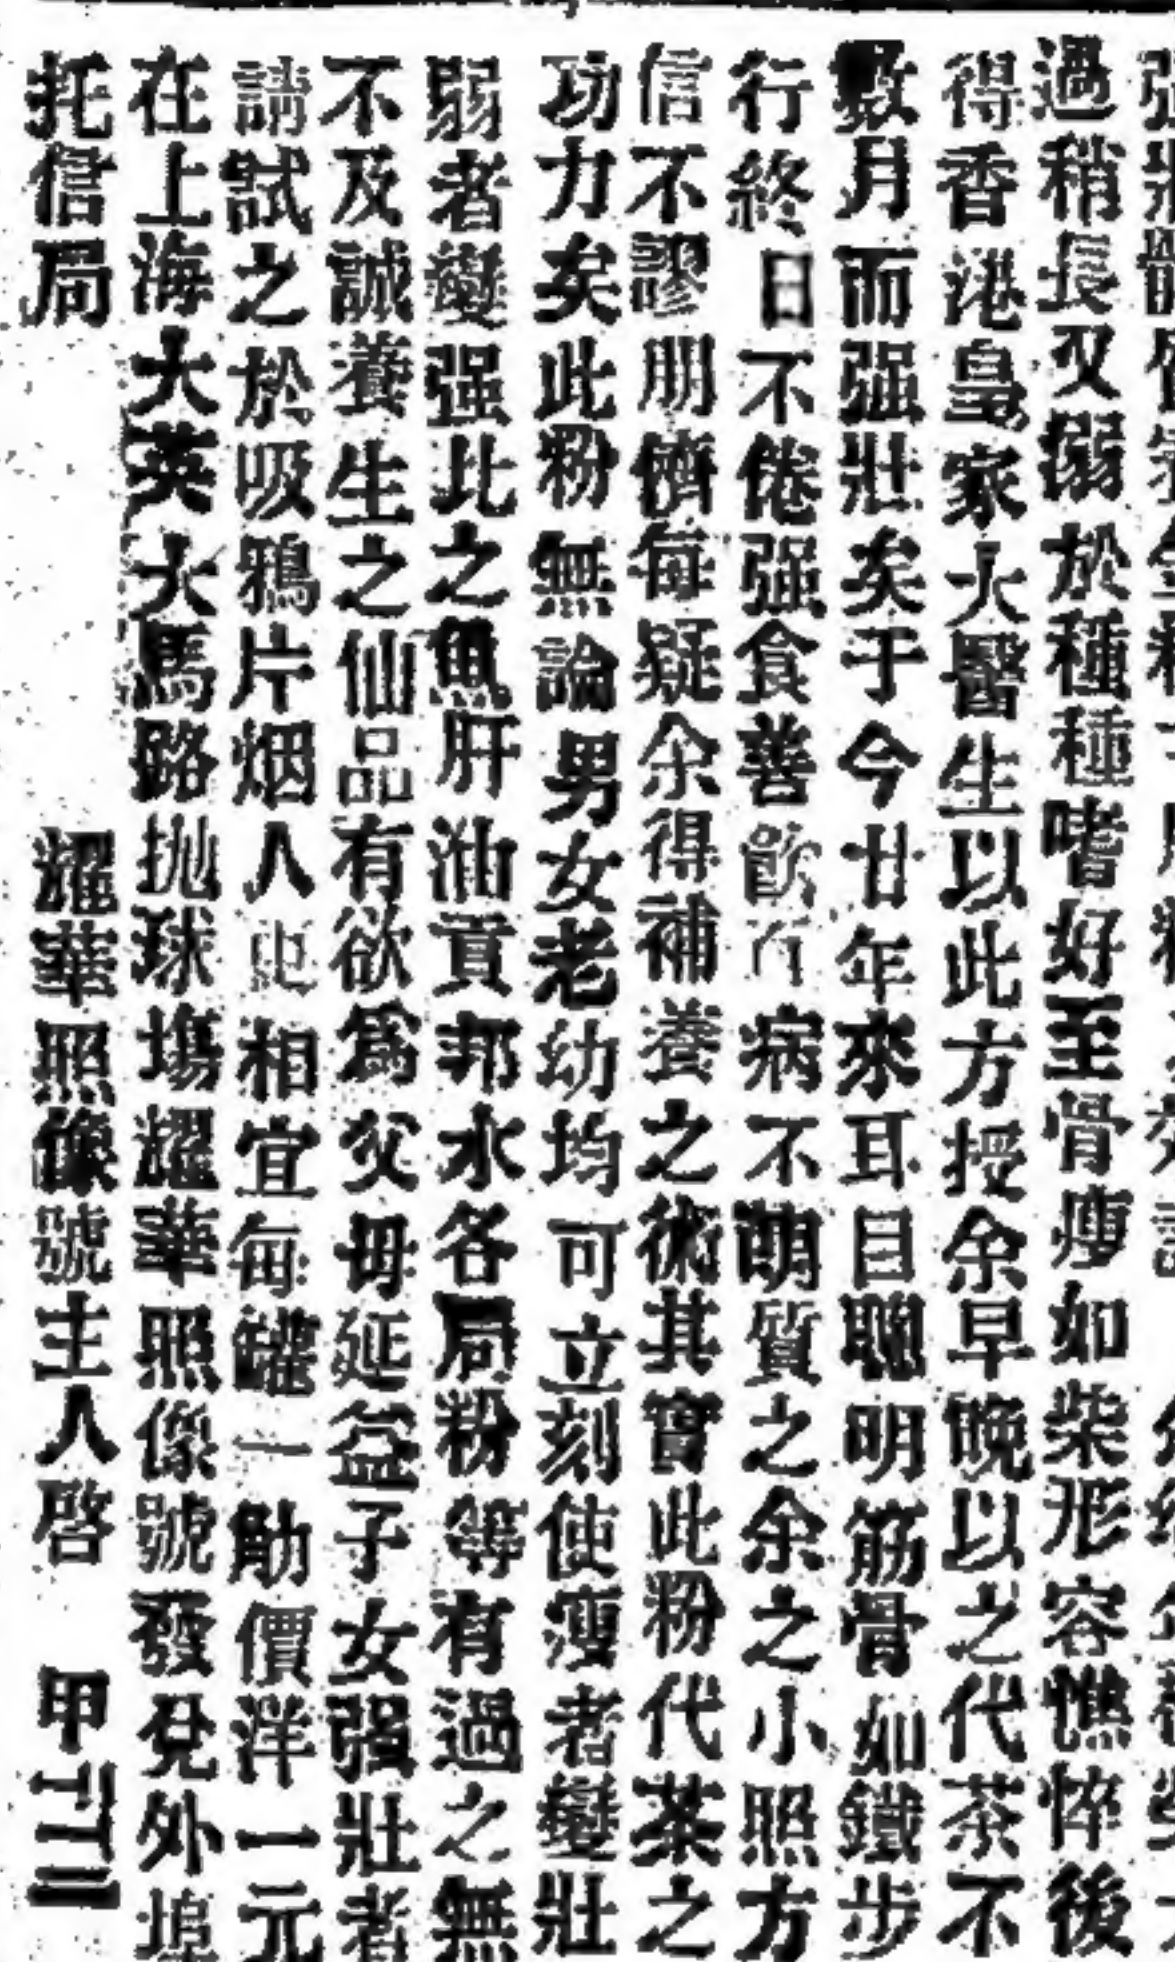 過稍長又溺於種種嗜好至骨瘦如柴形容憔悴後
得香港皇家大醫生以此方授余早晚以之代茶不
數月而强壯矣于今廿年來耳目聰明筋骨如鐵步
行終日不倦强食善飲百病不萌質之余之小照方
信不謬朋儕每疑余得補養之術其實此粉代茶之
功力矣此粉無論男女老幼均可立刻使瘦者變壯
弱者變强此之魚肝油貢邦水各局粉等有過之無
不及誠養生之仙品有欲爲父母延益子女强壯者
請試之於吸鴉片烟人更相宜每罐一觔價洋一元
在上海大英大馬路抛球塲耀華照像號發兌外埠
托信局 耀華照像號主人啓 甲